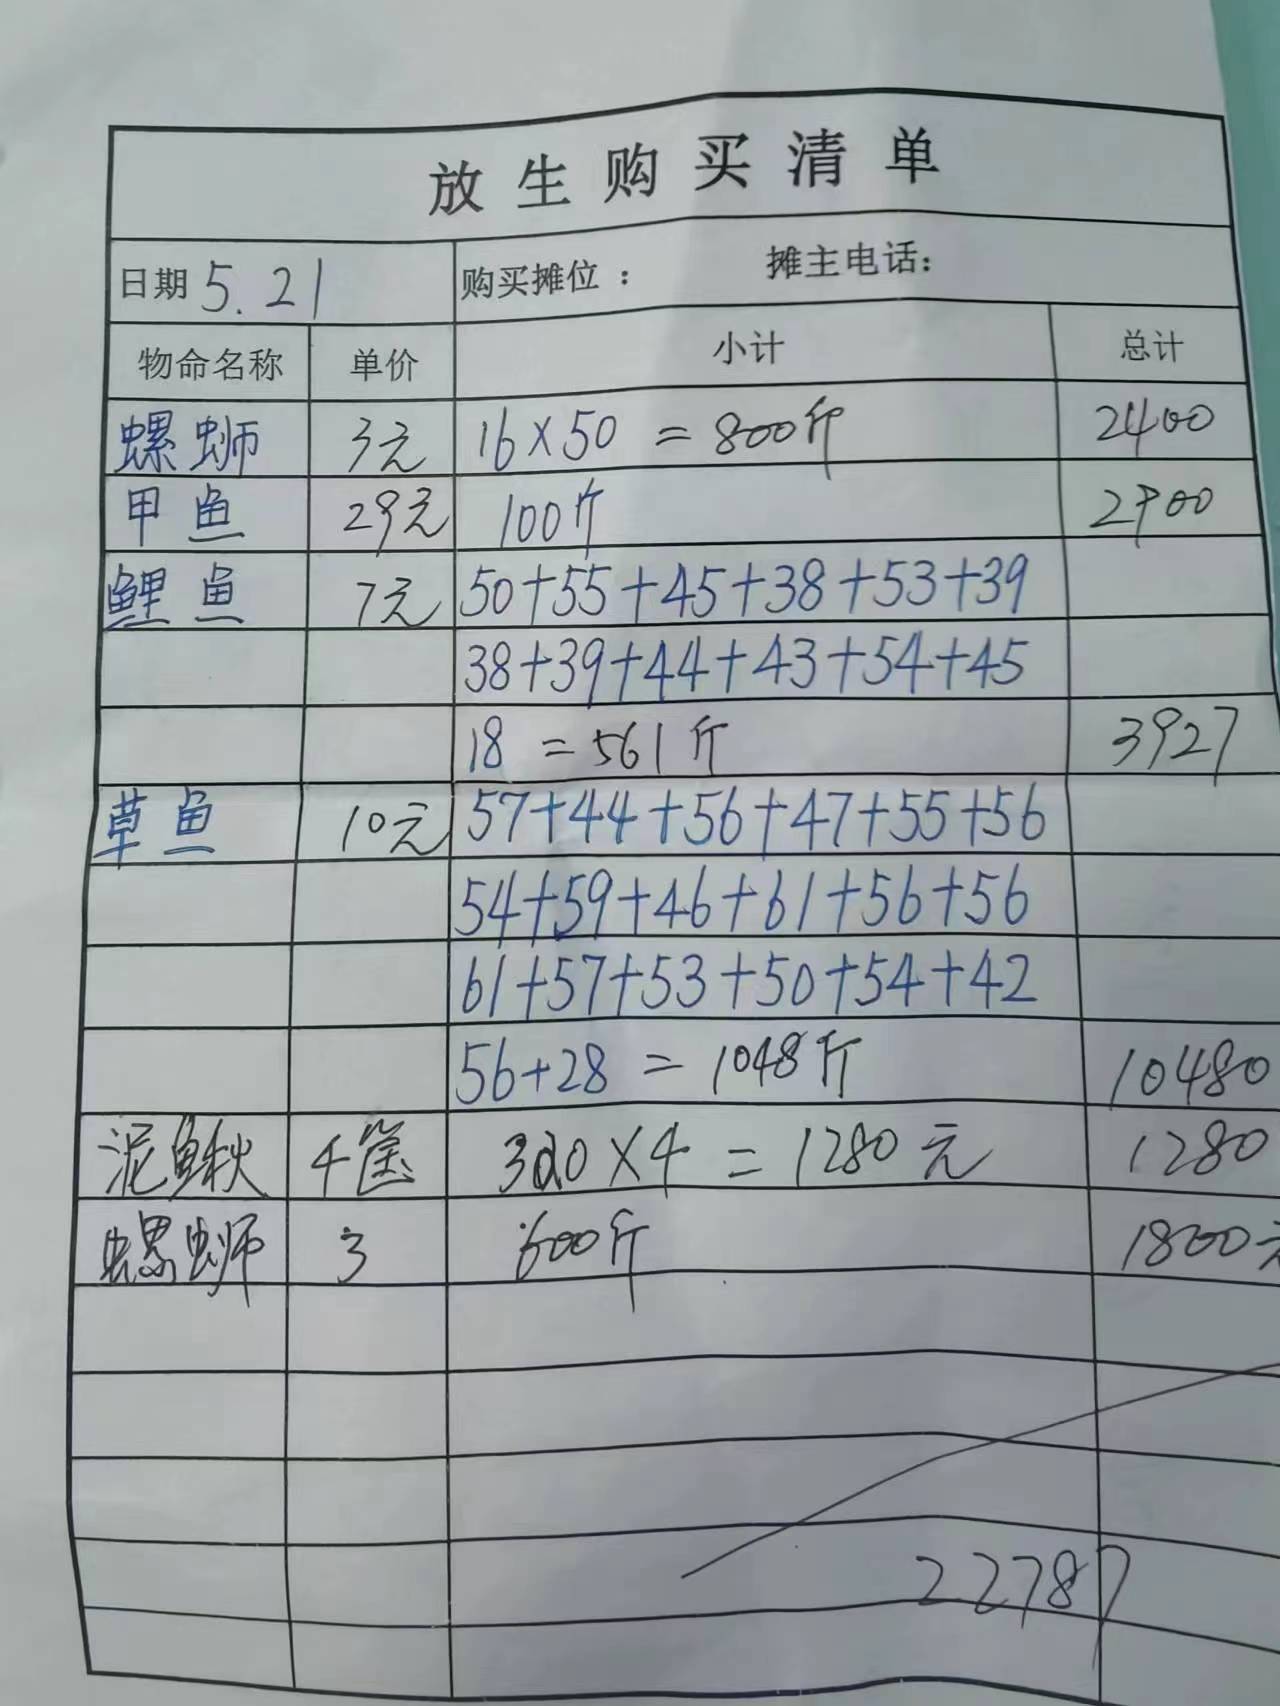 放生购买清单
日期 5.21 购买摊位： 摊主电话：
物命名称 单价 小计 总计
螺蛳 3元 16×50 = 800斤 2400
甲鱼 29元 100斤 2900
鲤鱼 7元 50+55+45+38+53+39
38+39+44+43+54+45
18 = 561斤 3927
草鱼 10元 57+44+56+47+55+56
54+59+46+61+56+56
61+57+53+50+54+42
56+28 = 1048斤 10480
泥鳅 4筐 320×4 = 1280元 1280
螺蛳 3 600斤 1800元
22787